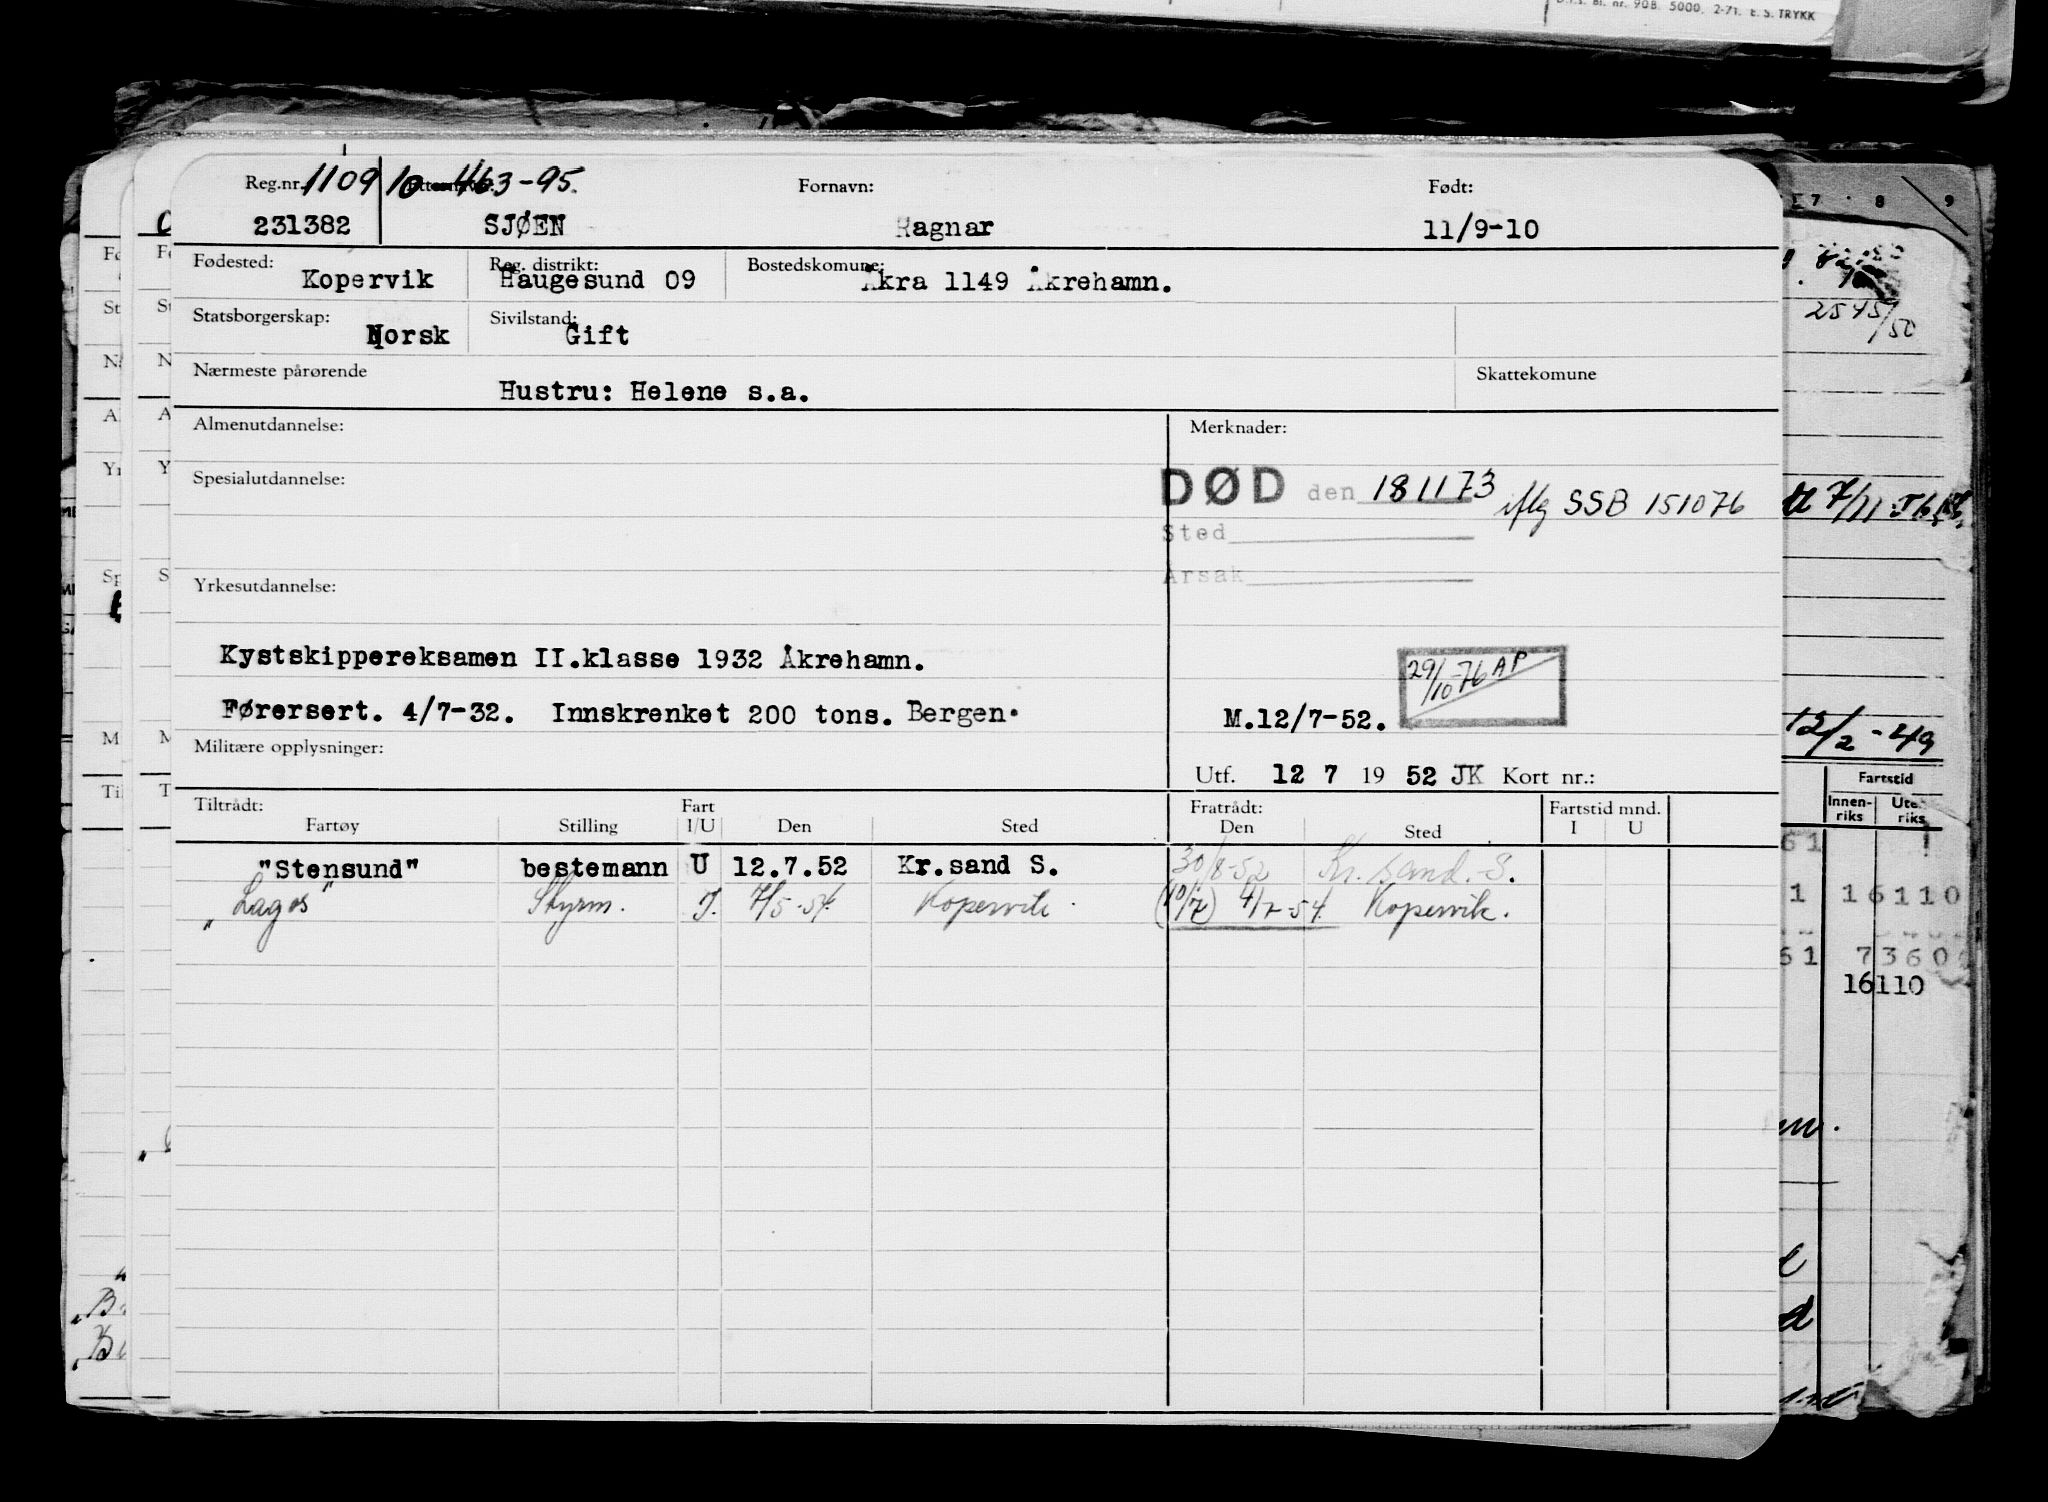 D.i.s. Bl. nr. 908. 5000. 2-71. E. S. TRYKK
Reg.nr. 110910 463-95.
Fornavn: Født:
231382 SJØEN Ragnar 11/9-10
Fødested: Kopervik Reg. distrikt: Haugesund 09 Bostedskomune: Åkra 1149 Åkrehamn.
Statsborgerskap: Norsk Sivilstand: Gift
Nærmeste pårørende Hustru: Helene s.a. Skattekomune
Almenutdannelse: Merknader:
Spesialutdannelse: DØD den 181173 iflg SSB 151076
Sted
Årsak
Yrkesutdannelse:
Kystskippereksamen II.klasse 1932 Åkrehamn.
29/10-76 AP
Førersert. 4/7-32. Innskrenket 200 tons. Bergen. M.12/7-52.
Militære opplysninger:
Utf. 12 7 19 52 JK Kort nr.:
Tiltrådt: Fart Fratrådt: Fartstid mnd.
Fartøy Stilling I/U Den Sted Den Sted I U
"Stensund" bestemann U 12.7.52 Kr.sand S. 30/8-52 Kr. sand.-S.
"Lagos" Styrm. I. 7/5-54. Kopervik (10/7) 4/7-54. Kopervik.
7 8 9
2545/50
12/2-49
Fartstid
Innen-riks Ute riks
61
1 16110
61 7360
16110